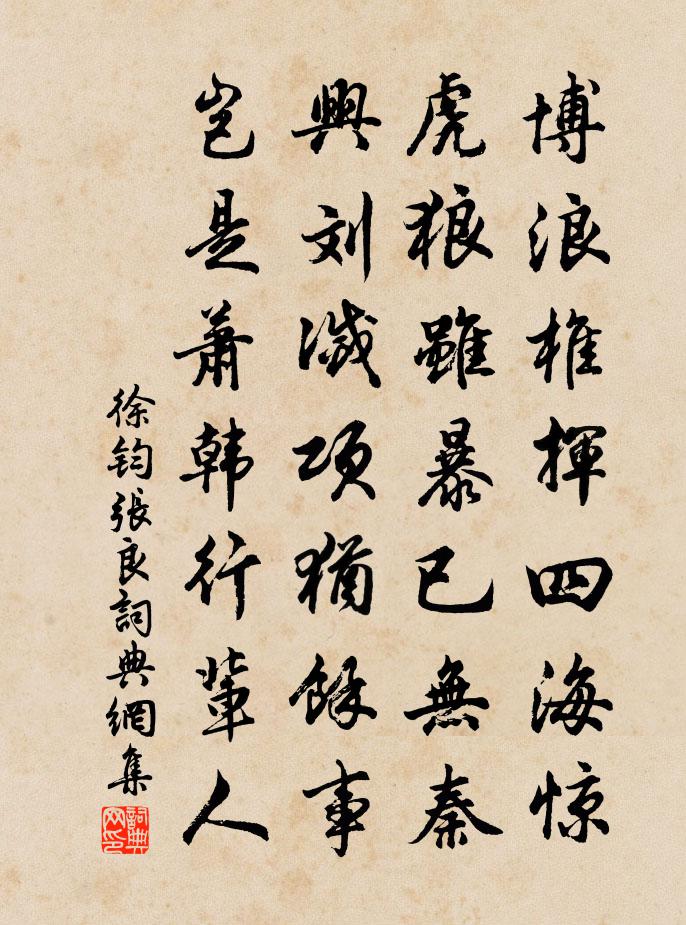 博浪椎揮四海惊
虎狼雖暴已無秦
興刘滅項猶餘事
岂是萧韩行輩人
徐鈞張良詞典網集
詞典网印